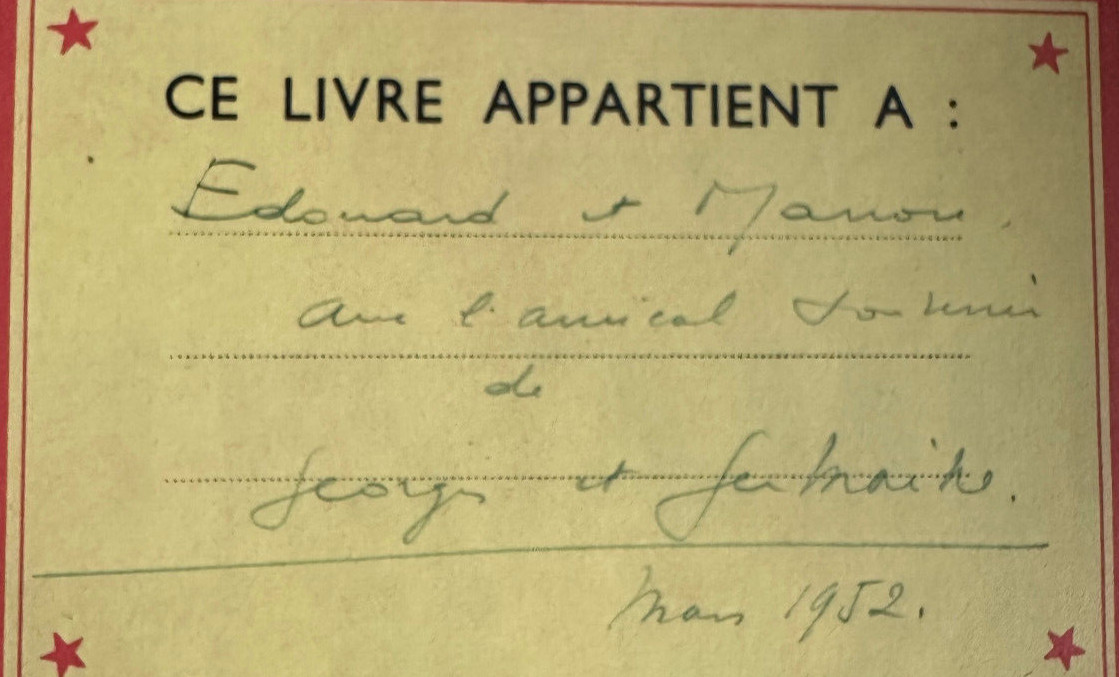 CE LIVRE APPARTIENT A :
Edouard et Manon,
avec l'amical souvenir
de
Georges et Germaine.
Mars 1952.